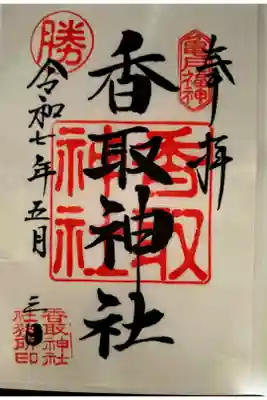 奉拝
亀戸福神
香取神社
香取神社
勝
令和七年五月
香取神社
社務所印